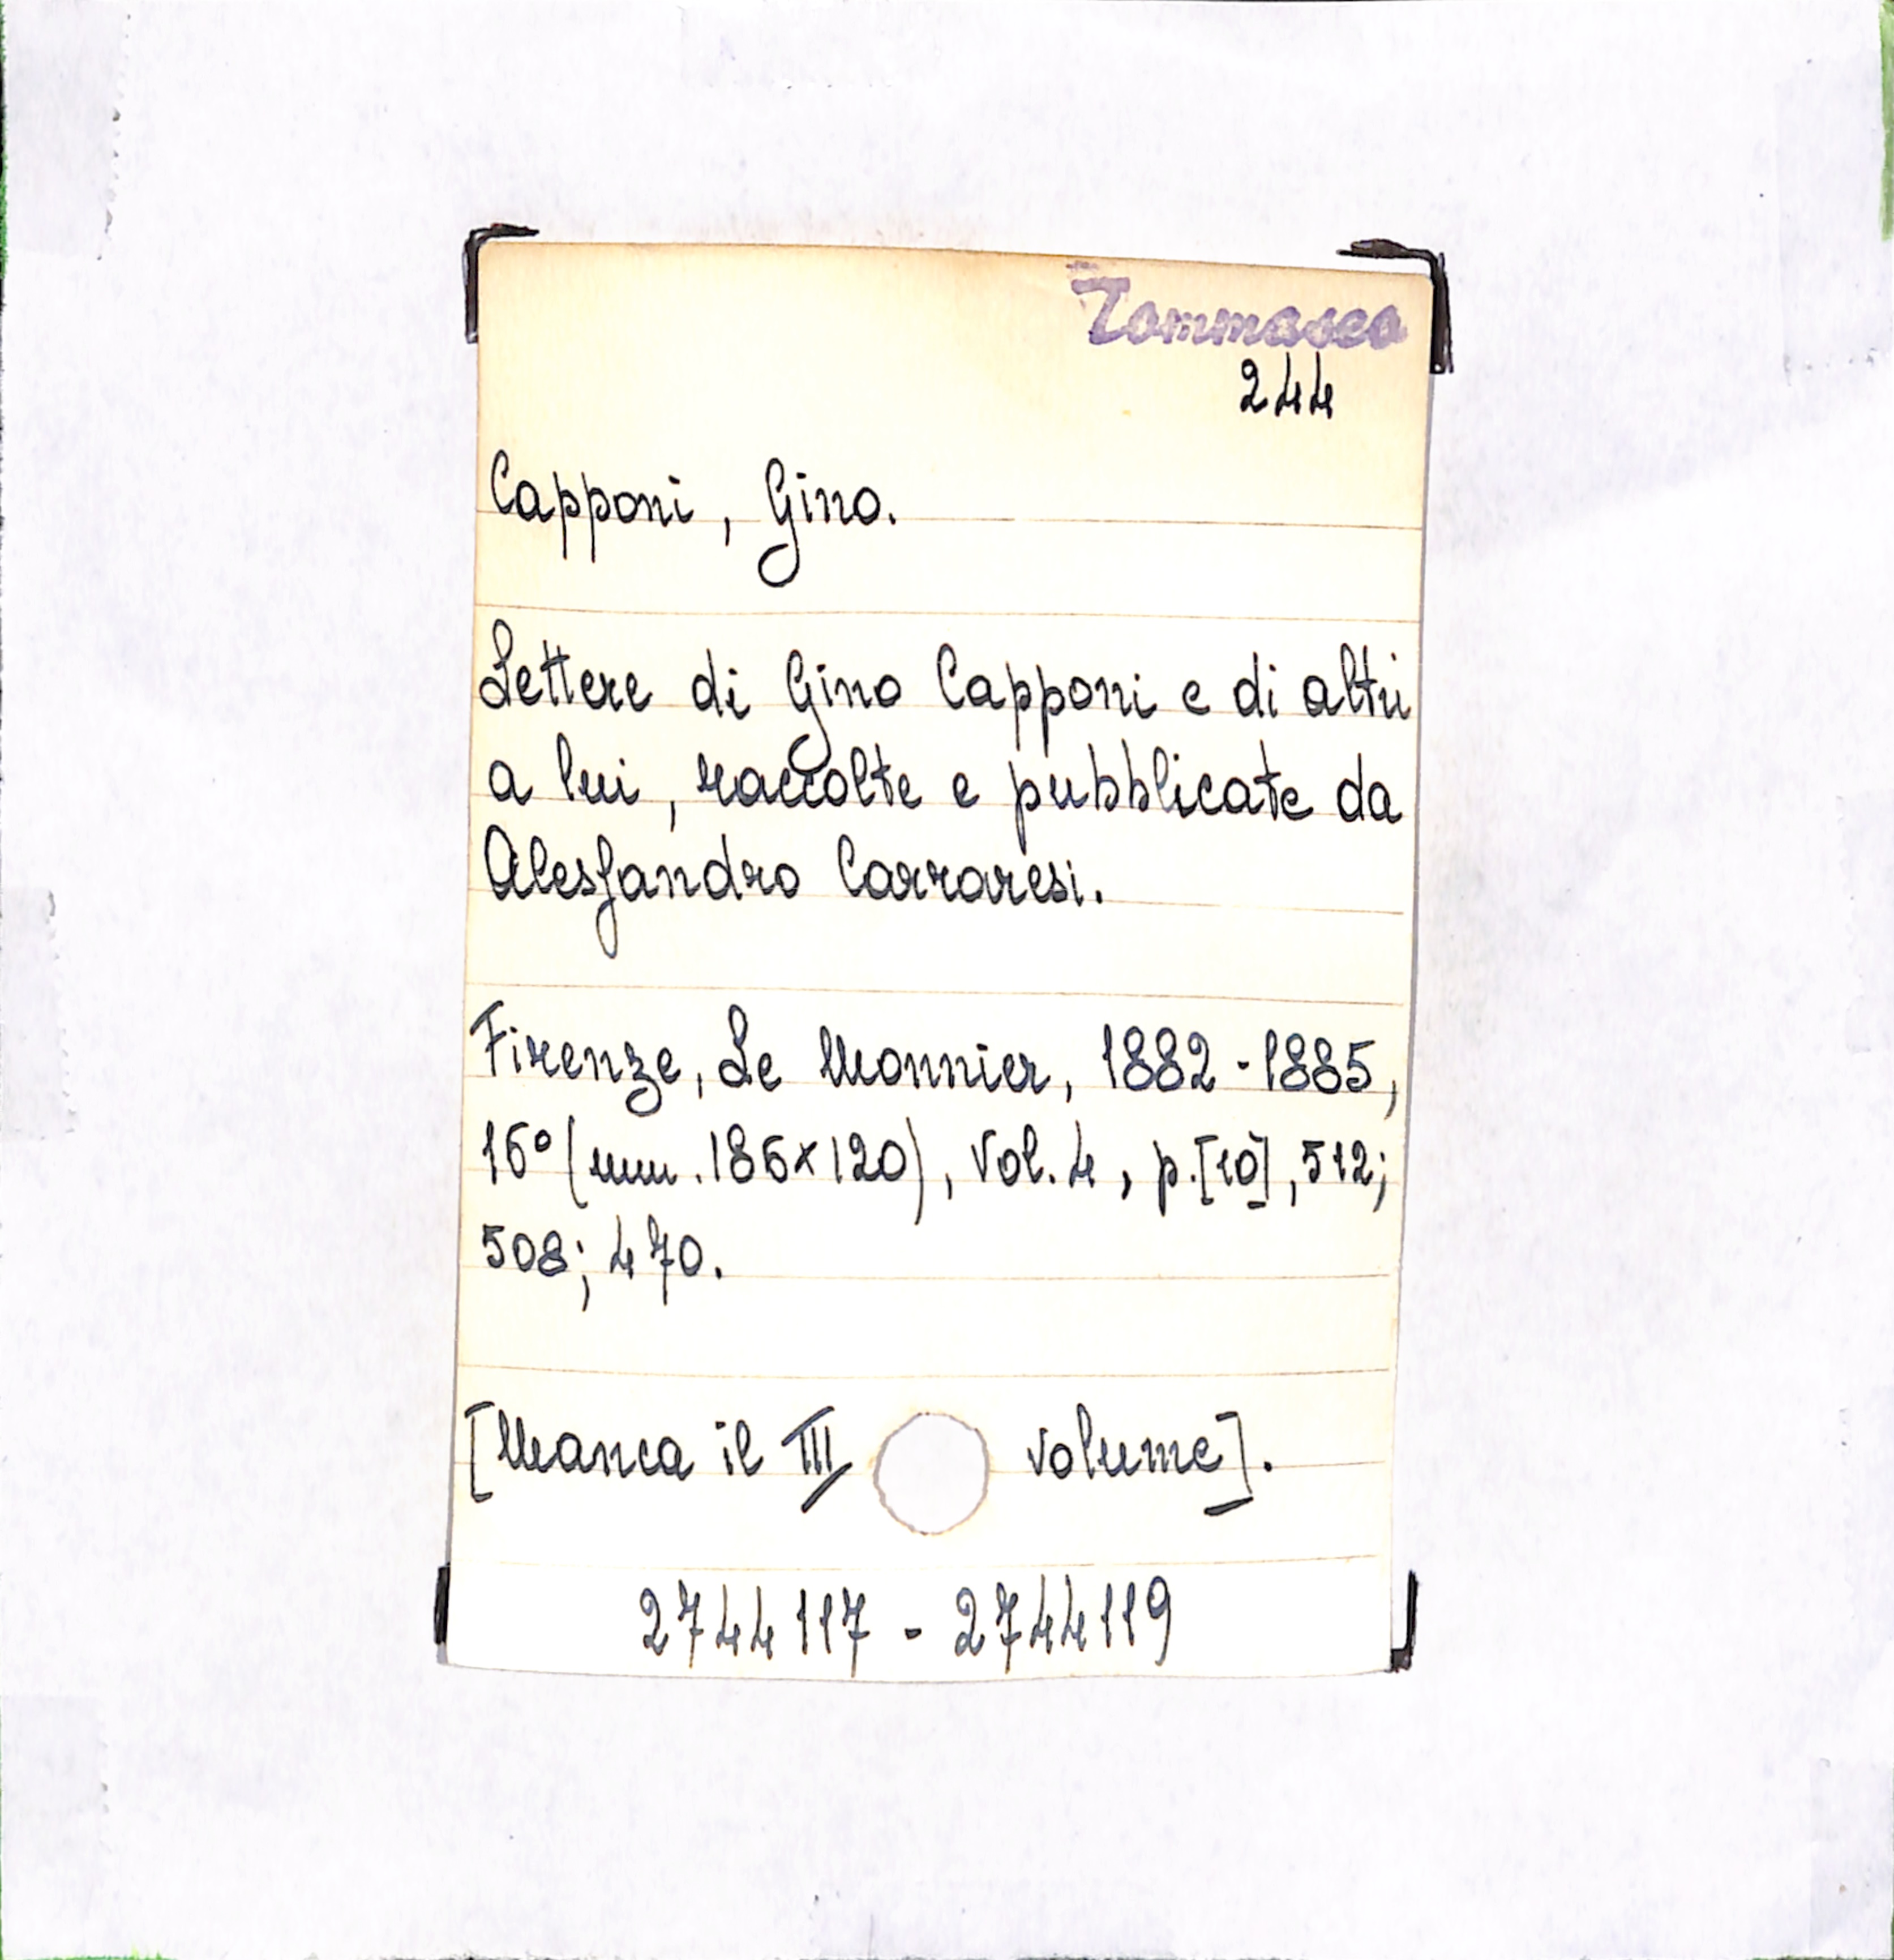 Tommaseo
244
Capponi, Gino.
Lettere di Gino Capponi e di altri
a lui, raccolte e pubblicate da
Alessandro Carraresi.
Firenze, Le Monnier, 1882-1885,
16° (mm. 186x120), vol. 4, p. [10], 512;
508; 470.
[Manca il III volume].
2744117 - 2744119